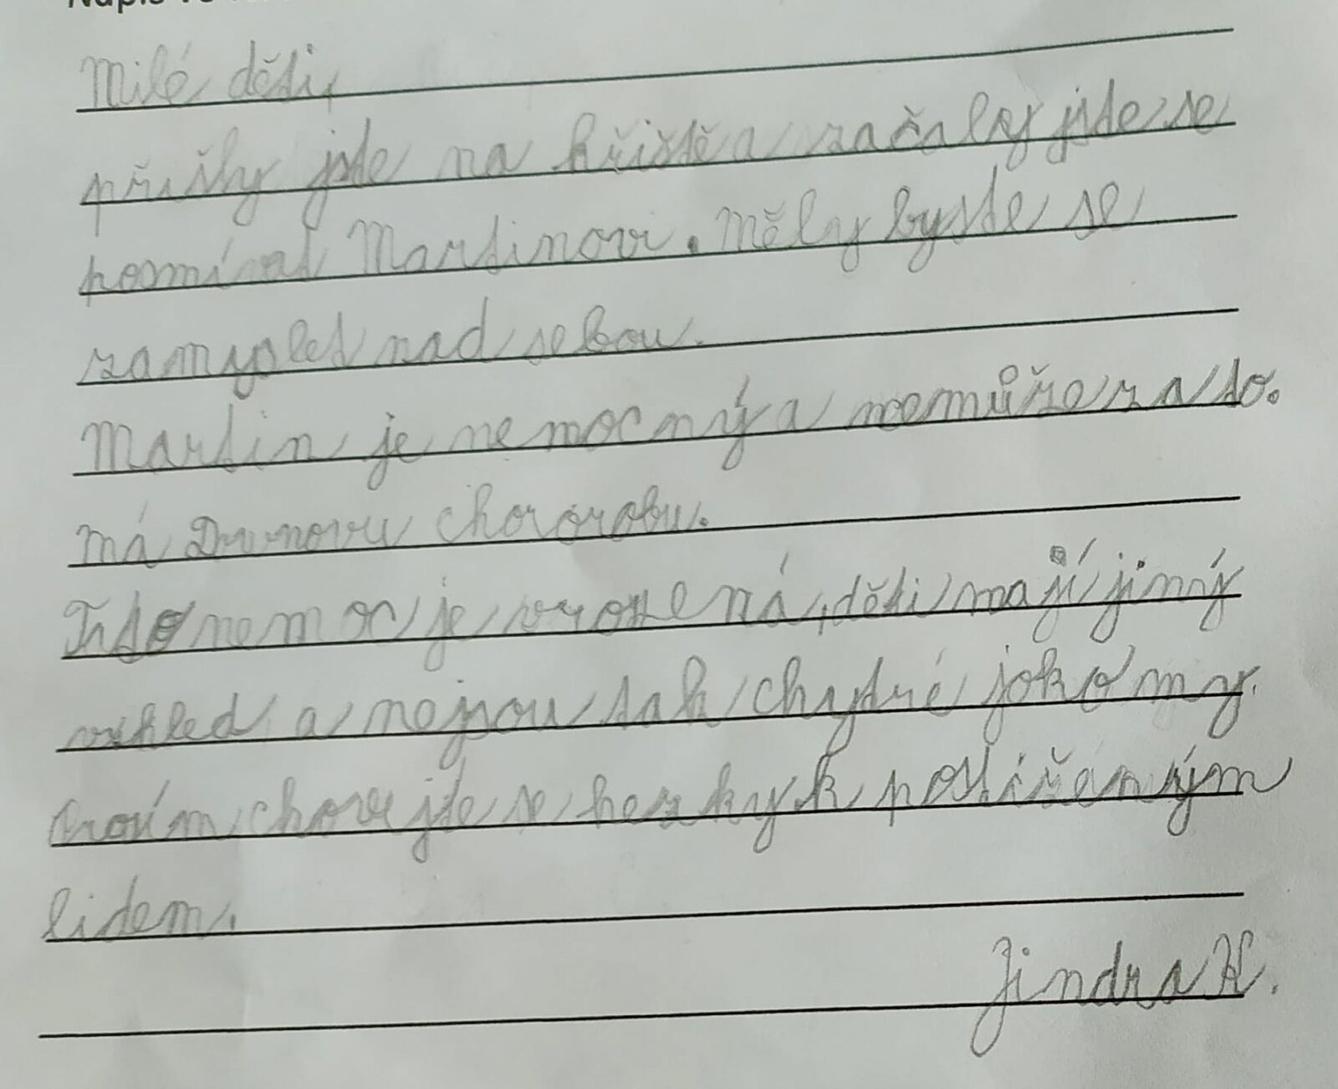 Milé děti,
přišly jste na hřiště a začaly jste se
posmívat Martinovi. Měly byste se
zamyslet nad sebou.
Martin je nemocný a nemůže za to.
má Downovu chororobu.
Tato nemoc je vrozená, děti mají jiný
vzhled a nejsou tak chytré jako my.
Prosím, chovejte se hezky k postiženým
lidem.
Jindra K.